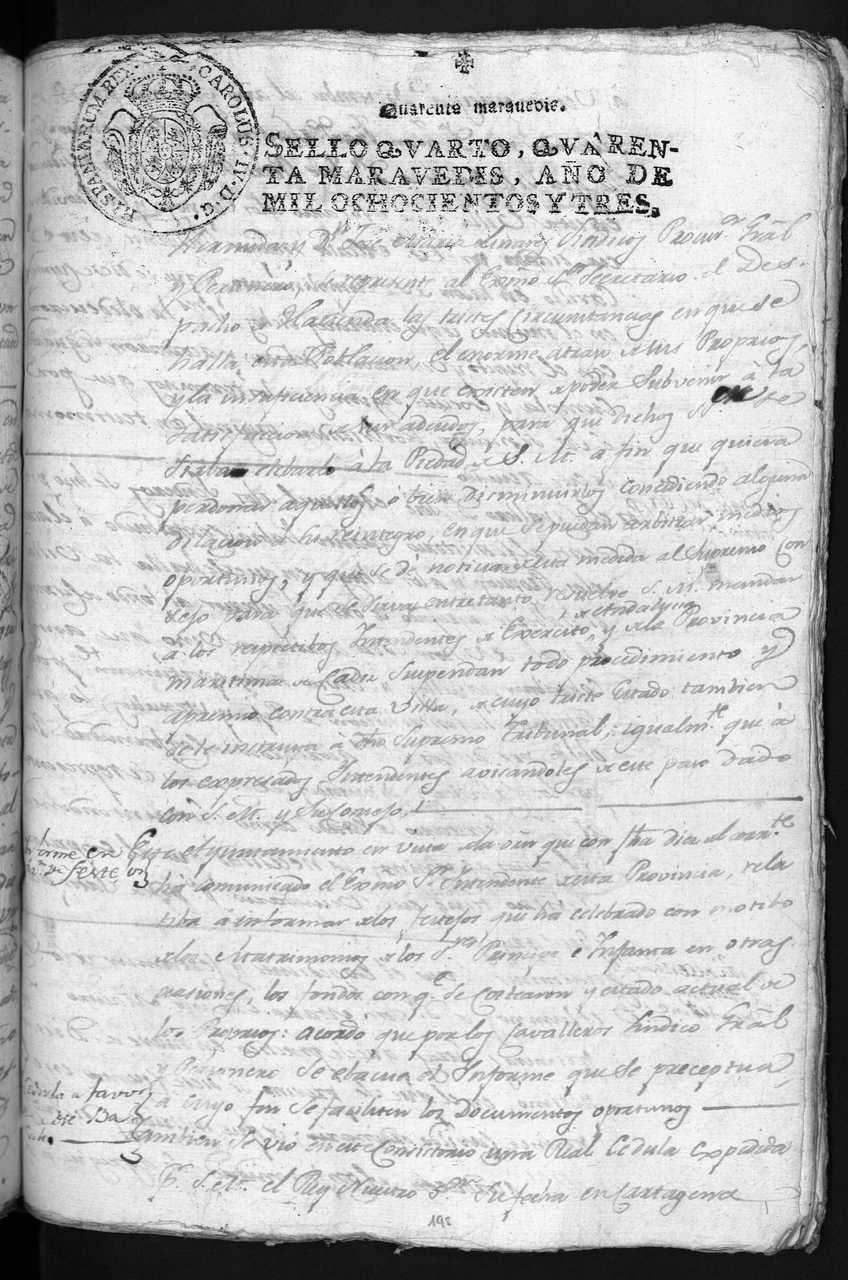 HISPANIARUM REX CAROLUS IV D G
Quarenta marauedis.
SELLO QVARTO, QVAREN-
TA MARAVEDIS, AÑO DE
MIL OCHOCIENTOS Y TRES.
Dn Jose Maria Linares Procurr Gral
y Personero, se represente al Exmo Sr Secretario del Des-
pacho de Hacienda las tristes Circunstancias en que se
halla esta Poblacion, el enorme atraso de sus Proprios,
y la insuficiencia en que existen de poder Subvenir à la
satisfaccion de sus adeudos, para que dichos
elebarlo à la Piedad de S. M. a fin que quiera
perdonar aquellos, ó bien disminuirlos concediendo alguna
dilacion à su reintegro, en que se puedan arbitrar medios
oportunos, y que se dé noticia de esta medida al Supremo Con
sejo para que se sirva entretanto resuelve S. M. mandar
à los respectivos Intendentes de Exercito de Andalucia, y de la Provincia
maritima de Cadiz suspendan todo procedimiento y
apremio contra esta Villa, de cuyo triste Estado tambien
se le instruya à dho Supremo Tribunal; igualmte que à
los expresados Intendentes avisandoles de este paso dado
con S. M. y su Consejo.
Informe en
de festejos
Este Ayuntamiento en vista de la orn que con fha diez del corrte
ha comunicado el Exmo Sr Intendente de esta Provincia, rela
tiba à informar de los festejos que ha celebrado con motibo
de los Matrimonios de los Sres Principe e Infanta en otras
ocasiones, los fondos con qe se costearon y estado actual de
los Proprios: acordó que por los Cavalleros Sindico Gral
y Personero se ebacue el Informe que se preceptua,
a cuyo fin se faciliten los Documentos oportunos
Cedula a favor
de
Tambien se vió en este Consistorio una Real Cedula expedida
Pr S. M. el Rey Nuestro Sr su fecha en Cartagena
195